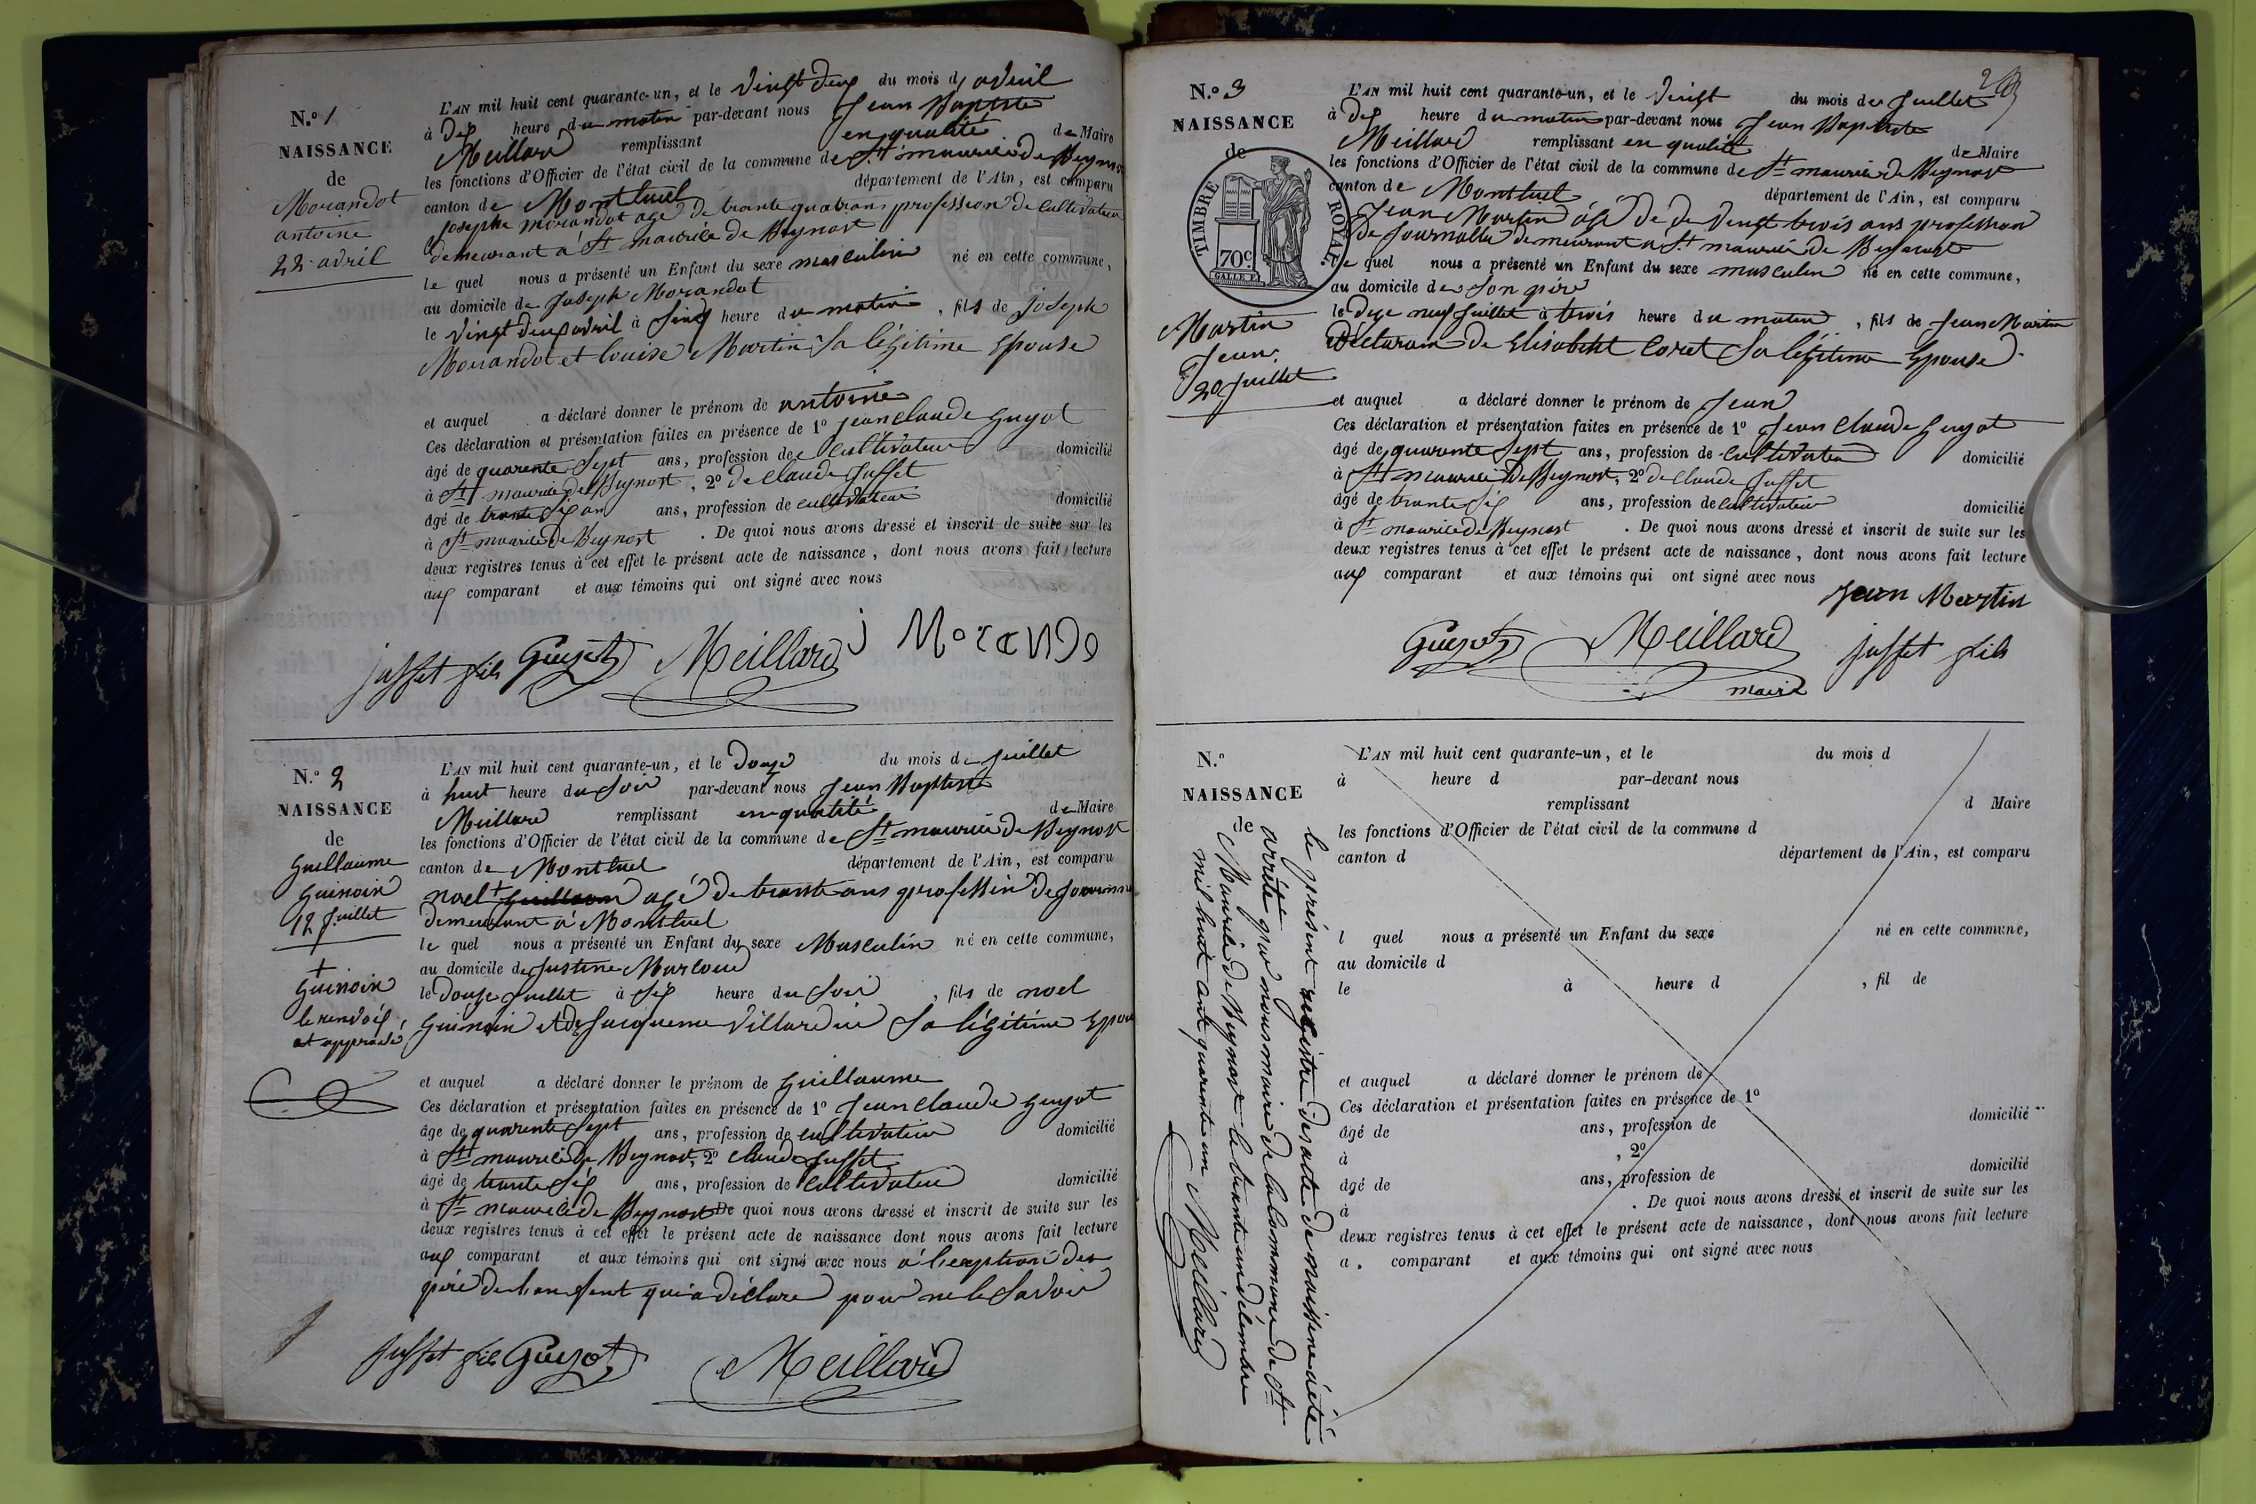 N.o 1
NAISSANCE
de
Morandot
antoine
22 avril
L'AN mil huit cent quarante-un, et le vingt deux du mois d avril
à dix heure du matin par-devant nous Jean Baptiste
Meillard remplissant en qualité de Maire
les fonctions d'Officier de l'état civil de la commune de St maurice de Beynost
canton de Montluel département de l'Ain, est comparu
Josephe morandot agé de trante quatrans profession de Cultivateur
demeurant a St maurice de Beynost
le quel nous a présenté un Enfant du sexe masculin né en cette commune,
au domicile de Joseph Morandot
le vingt deux avril à cinq heure du matin, fils de Joseph
Morandot et louise Martin sa légitime Epouse
et auquel a déclaré donner le prénom de antoine
Ces déclaration et présentation faites en présence de 1o jean Claude Guyot
âgé de quarente Sept ans, profession de Cultivateur domicilié
à St maurice de Beynost, 2o de Claude Juffet
âgé de trante six an ans, profession de cultivateur domicilié
à St maurice de Beynost. De quoi nous avons dressé et inscrit de suite sur les
deux registres tenus à cet effet le présent acte de naissance, dont nous avons fait lecture
aux comparant et aux témoins qui ont signé avec nous
juffet fils Guyot Meillard j MoraNdo
N.o 2
NAISSANCE
de
Guillaume
Guinoin
12 Juillet
+
Guinoin
le renvoi
et approuvé
L'AN mil huit cent quarante-un, et le douze du mois de juillet
à huit heure du soir par-devant nous Jean Baptiste
Meillard remplissant en qualité de Maire
les fonctions d'Officier de l'état civil de la commune de St maurice de Beynost
canton de Montluel département de l'Ain, est comparu
noel + agé de trante ans profession de
demeurant a Montluel
le quel nous a présenté un Enfant du sexe Masculin né en cette commune,
au domicile de Justine
le douze Juillet à six heure du soir, fils de noel
Guinoin et de sa légitime
et auquel a déclaré donner le prénom de Guillaume
Ces déclaration et présentation faites en présence de 1o Jean Claude Guyot
âge de quarente Sept ans, profession de cultivateur domicilié
à St maurice de Beynost, 2o Claude Juffet
âgé de trante six ans, profession de Cultivateur domicilié
à St maurice de Beynost De quoi nous avons dressé et inscrit de suite sur les
deux registres tenus à cet effet le présent acte de naissance dont nous avons fait lecture
aux comparant et aux témoins qui ont signé avec nous a l'exeption du
père de l'anfent qui a déclaré pour ne le savoir
juffet fils Guyot Meillard
N.o 3
NAISSANCE
de
TIMBRE ROYAL
70 c
Martin
Jean
20 juillet
L'AN mil huit cent quarante-un, et le vingt du mois de Juillet
à dix heure du matin par-devant nous Jean Baptiste
Meillard remplissant en qualité de Maire
les fonctions d'Officier de l'état civil de la commune de St maurice de Beynost
canton de Montluel département de l'Ain, est comparu
Jean Martin agé de de vingt trois ans profession
de Journallié demeurant a St maurice de Beynost
le quel nous a présenté un Enfant du sexe masculin né en cette commune,
au domicile de son père
le dixe neuf Juillet à trois heure du matin, fils de Jean Martin
de Elisabeht Coret sa légitime Epouse
et auquel a déclaré donner le prénom de Jean
Ces déclaration et présentation faites en présence de 1o Jean Claude Guyot
âgé de quarente Sept ans, profession de Cultivateur domicilié
à St maurice de Beynost, 2o de Claude Juffet
âgé de trante six ans, profession de Cultivateur domicilié
à St maurice de Beynost. De quoi nous avons dressé et inscrit de suite sur les
deux registres tenus à cet effet le présent acte de naissance, dont nous avons fait lecture
aux comparant et aux témoins qui ont signé avec nous
Jean Martin
Guyot Meillard juffet fils
maire
N.o
NAISSANCE
de
le présent registre des acte de naissence a été
arrêté par nous maire de la commune de St
Maurice de Beynost le trante un décembre
mil huit cent quarente un Meillard
L'AN mil huit cent quarante-un, et le du mois d
à heure d par-devant nous
remplissant d Maire
les fonctions d'Officier de l'état civil de la commune d
canton d département de l'Ain, est comparu
l quel nous a présenté un Enfant du sexe né en cette commune,
au domicile d
le à heure d, fil de
et auquel a déclaré donner le prénom de
Ces déclaration et présentation faites en présence de 1o
âgé de ans, profession de domicilié
à, 2o
âgé de ans, profession de domicilié
à. De quoi nous avons dressé et inscrit de suite sur les
deux registres tenus à cet effet le présent acte de naissance, dont nous avons fait lecture
a comparant et aux témoins qui ont signé avec nous